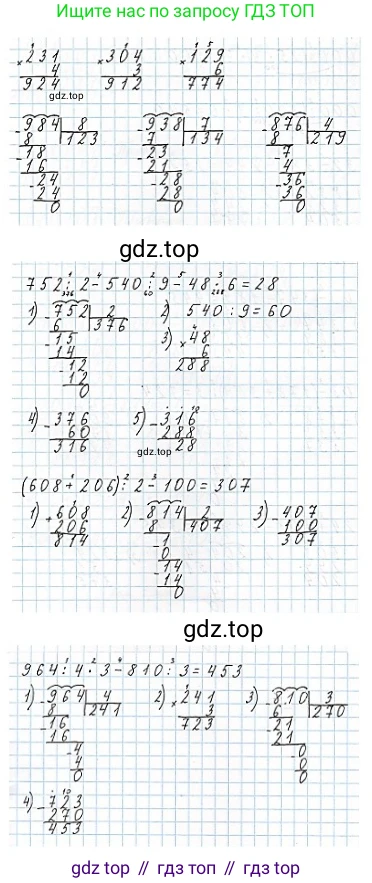 Ищите нас по запросу ГДЗ ТОП
× 231 × 304 × 129
4 3 6
924 912 774
gdz.top
- 984 | 8 - 938 | 7 - 876 | 4
8 123 7 134 8 219
- 18 - 23 - 7
16 21 4
- 24 - 28 - 36
24 28 36
0 0 0
gdz.top
752 : 2 - 540 : 9 - 48 · 6 = 28
1) - 752 | 2 2) 540 : 9 = 60
6 376 3) × 48
- 15 6
14 288
- 12
12
0
4) - 376 5) - 316
60 288
316 28
gdz.top
(608 + 206) : 2 - 100 = 307
1) + 608 2) - 814 | 2 3) - 407
206 8 407 100
814 - 1 307
0
- 14
14
0
gdz.top
964 : 4 · 3 - 810 : 3 = 453
1) - 964 | 4 2) × 241 3) - 810 | 3
8 241 3 6 270
- 16 723 - 21
16 21
- 4 - 0
4 0
0 0
4) - 723
270
453
gdz top // гдз топ // gdz.top